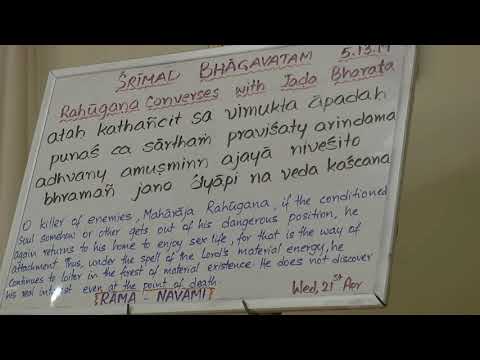 ŚRĪMAD BHĀGAVATAM 5.13.19
Rahūgaṇa Converses with Jaḍa Bharata
ataḥ kathañcit sa vimukta āpadaḥ
punaś ca sārthaṁ praviśaty arindama
adhvany amuṣminn ajayā niveśito
bhramañ jano 'dyāpi na veda kaścana
O killer of enemies, Mahārāja Rahūgaṇa, if the conditioned
soul somehow or other gets out of his dangerous position, he
again returns to his home to enjoy sex life, for that is the way of
attachment. Thus, under the spell of the Lord's material energy, he
continues to loiter in the forest of material existence. He does not discover
his real interest even at the point of death.
{RĀMA - NAVAMI} Wed, 21st Apr